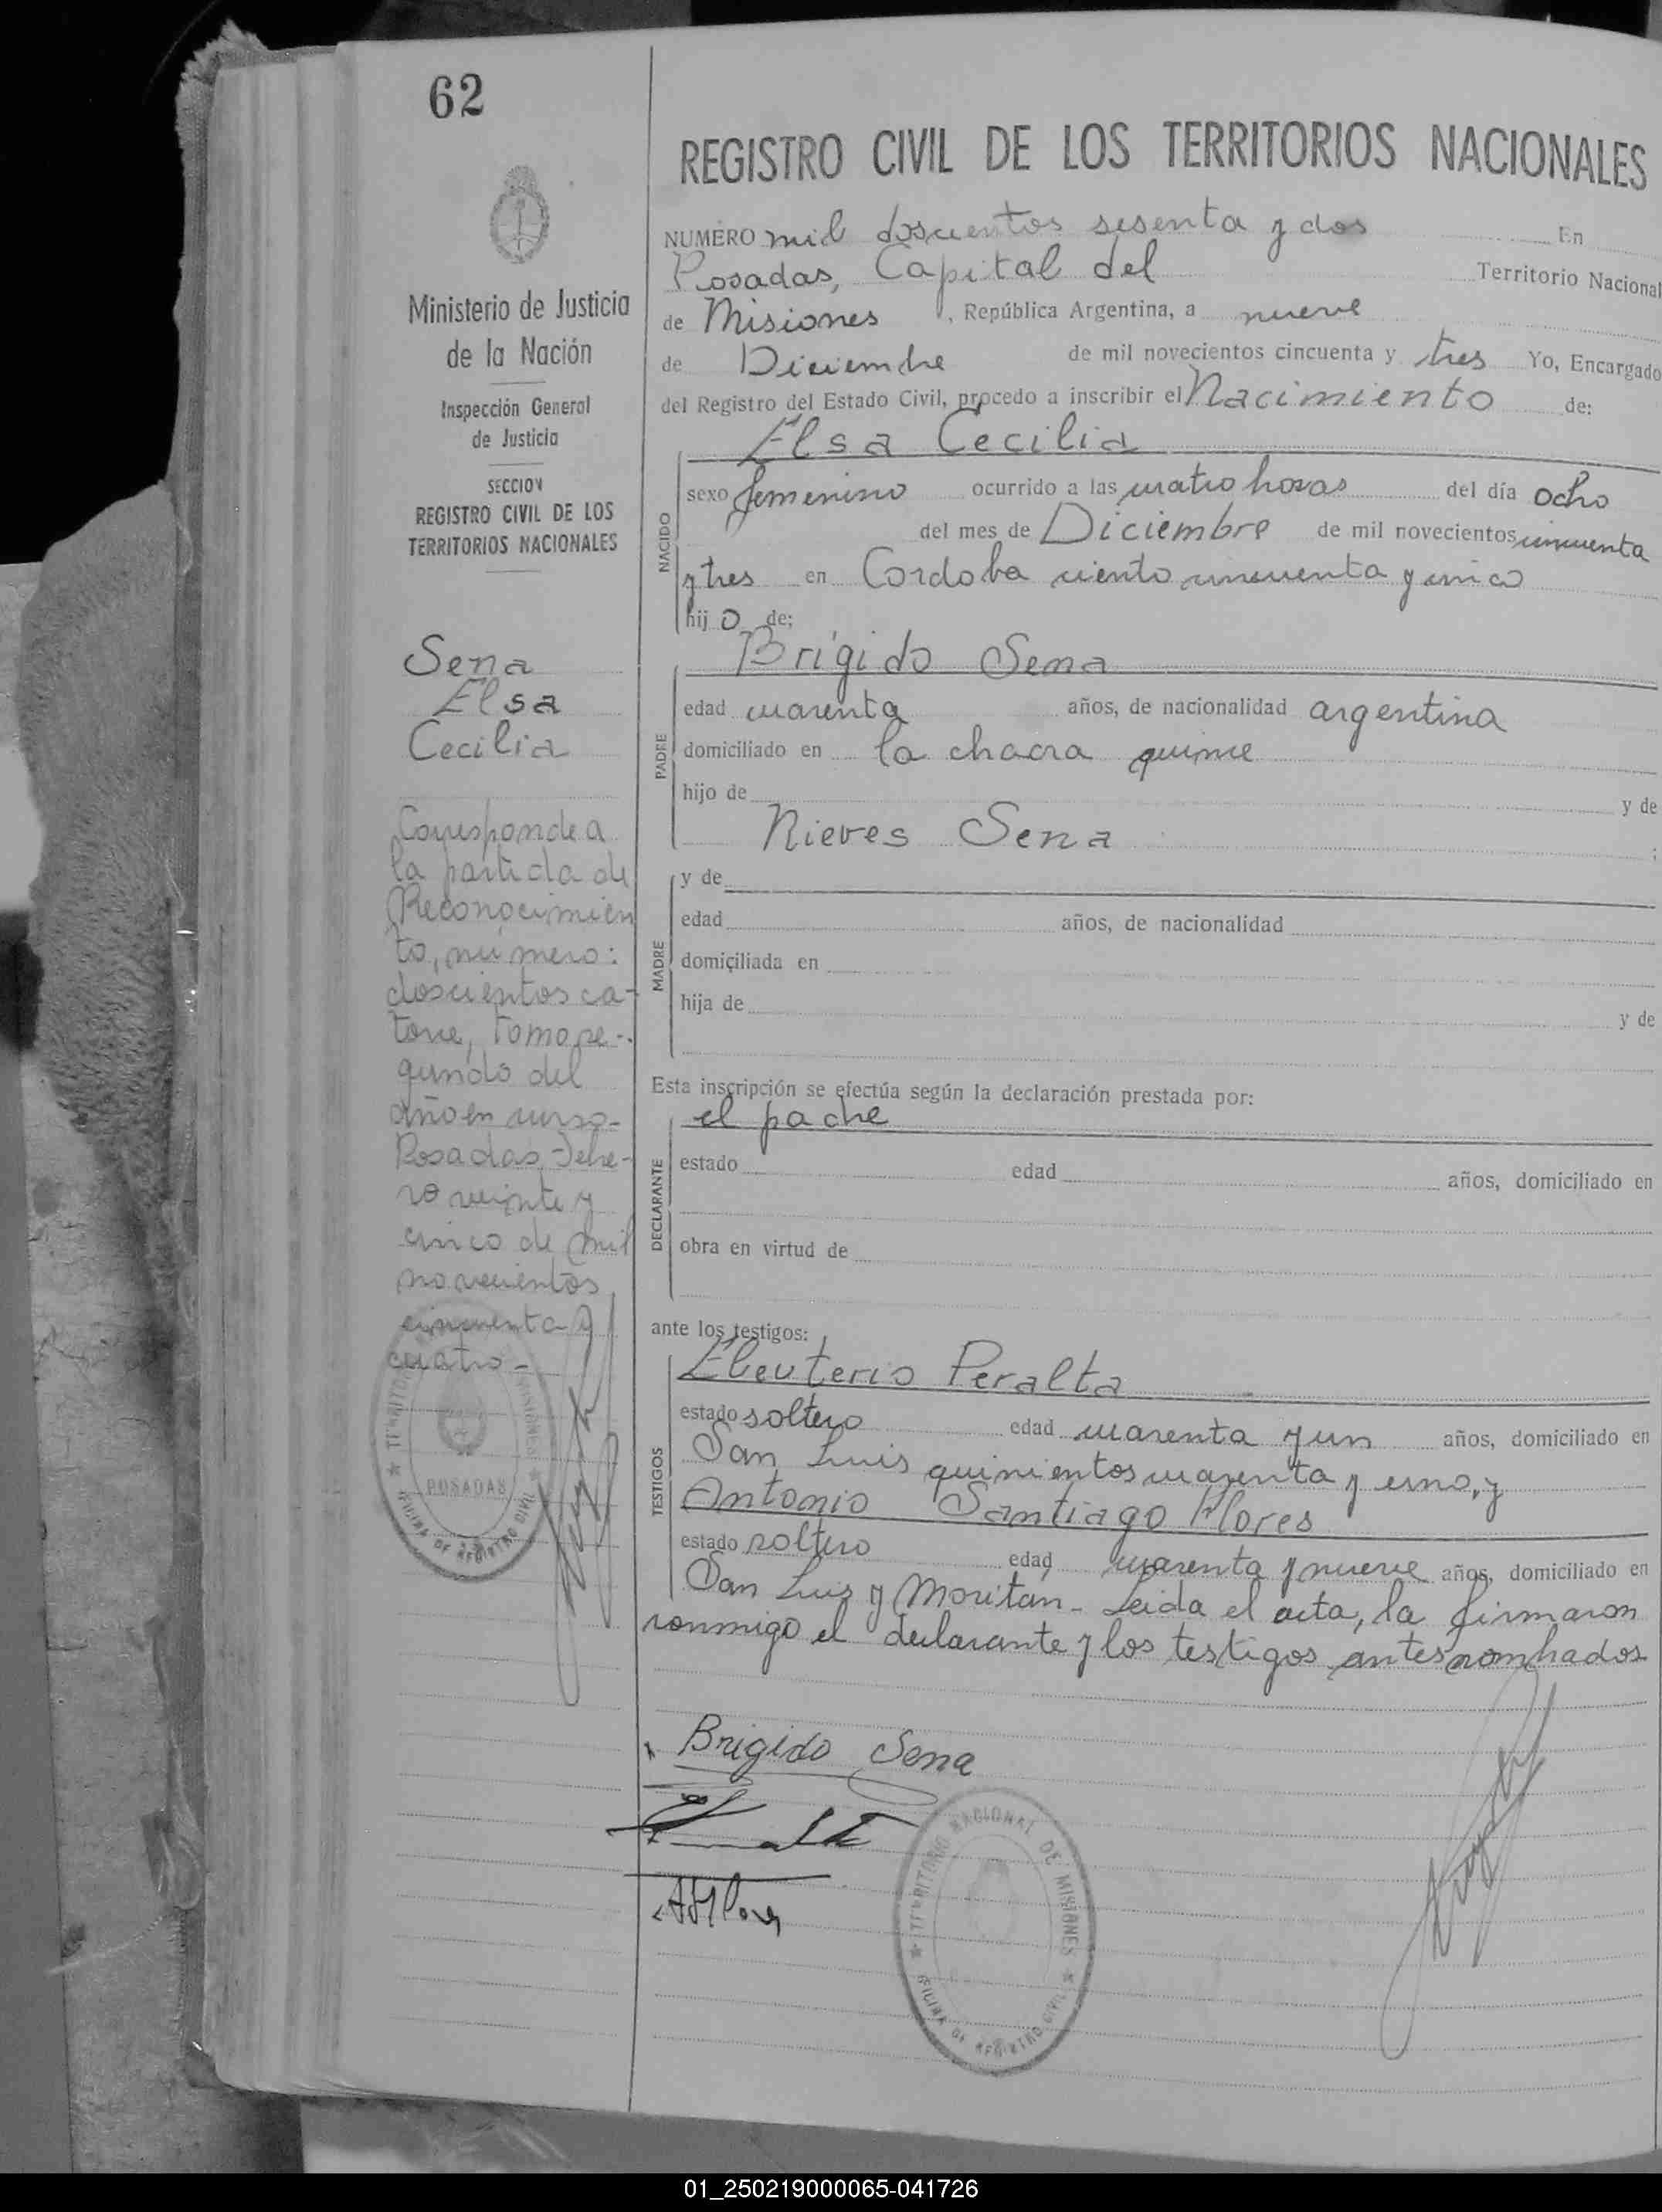 62
REGISTRO CIVIL DE LOS TERRITORIOS NACIONALES
Ministerio de Justicia
de la Nación
Inspección General
de Justicia
SECCION
REGISTRO CIVIL DE LOS
TERRITORIOS NACIONALES
Sena
Elsa
Cecilia
Corresponde a
la partida de
Reconocimien
to, número:
doscientos ca-
torce, tomo se-
gundo del
año en curso-
Posadas, Febre-
ro veinte y
cinco de mil
novecientos
cincuenta y
cuatro-
POSADAS
OFICINA DE REGISTRO CIVIL
NUMERO mil doscientos sesenta y dos En
Posadas, Capital del Territorio Nacional
de Misiones, República Argentina, a nueve
de Diciembre de mil novecientos cincuenta y tres Yo, Encargado
del Registro del Estado Civil, procedo a inscribir el Nacimiento de:
Elsa Cecilia
NACIDO
sexo femenino ocurrido a las cuatro horas del día ocho
del mes de Diciembre de mil novecientos cincuenta
y tres en Cordoba ciento cincuenta y cinco
hij o de;
Brígido Sena
PADRE
edad cuarenta años, de nacionalidad argentina
domiciliado en la chacra quince
hijo de y de
Nieves Sena ;
MADRE
y de
edad años, de nacionalidad
domiciliada en
hija de y de
Esta inscripción se efectúa según la declaración prestada por:
el padre
DECLARANTE
estado edad años, domiciliado en
obra en virtud de
ante los testigos:
TESTIGOS
Eleuterio Peralta
estado soltero edad cuarenta y un años, domiciliado en
San Luis quinientos cuarenta y uno, y
Antonio Santiago Flores
estado soltero edad cuarenta y nueve años, domiciliado en
San Luis y Moritán- Leida el acta, la firmaron
conmigo el declarante y los testigos antes nombrados
Brigido Sena
ASFlores
TERRITORIO NACIONAL DE MISIONES
OFICINA DE REGISTRO CIVIL
01_250219000065-041726